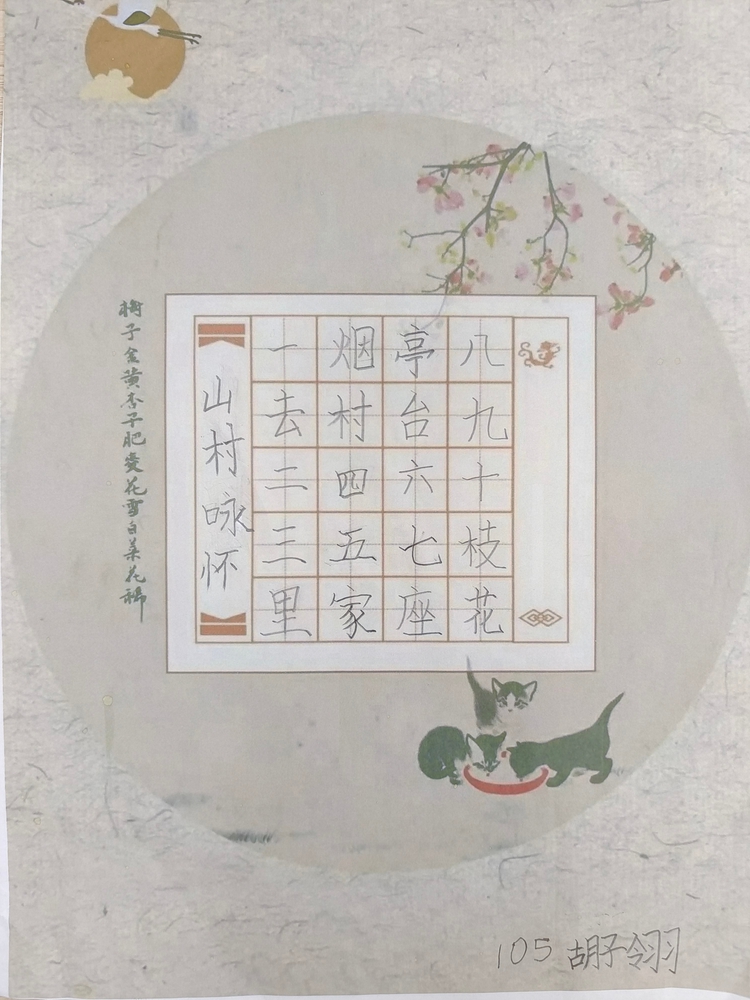 梅子金黄杏子肥麦花雪白菜花稀
山村咏怀
一去二三里
烟村四五家
亭台六七座
八九十枝花
105 胡子翎羽